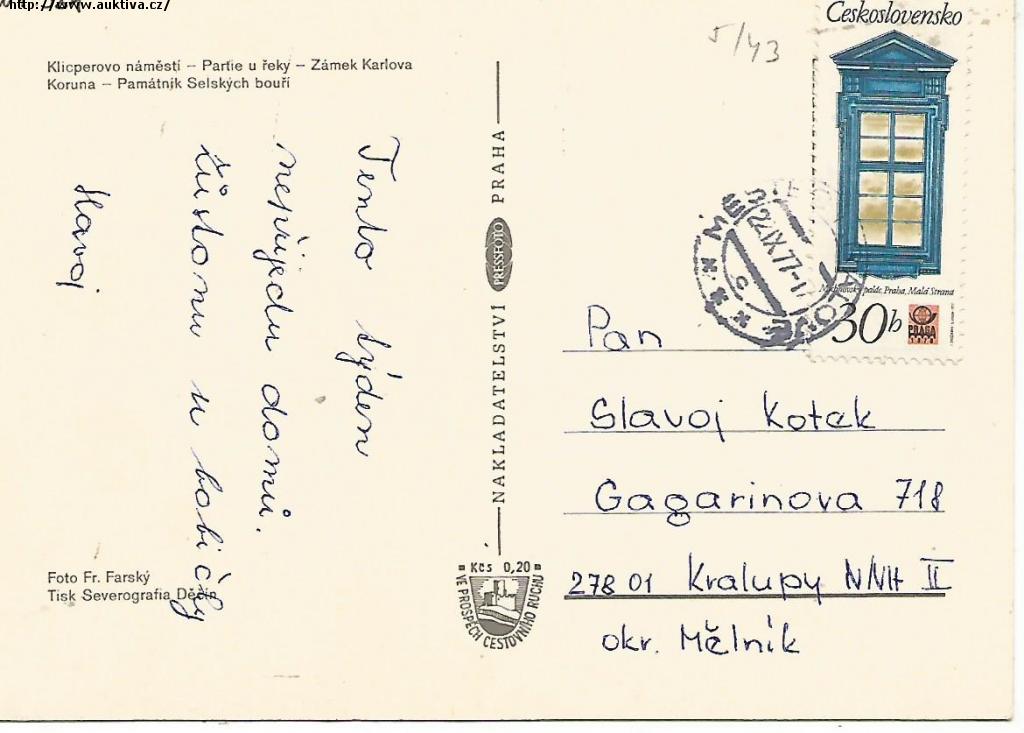 http://www.auktiva.cz/
Klicperovo náměstí – Partie u řeky – Zámek Karlova
Koruna – Památník Selských bouří
Tento týden
nepřijedu domů.
Zůstanu u babičky
Slavoj
Foto Fr. Farský
Tisk Severografia Děčín
NAKLADATELSTVÍ PRESSFOTO PRAHA
Kčs 0,20
VE PROSPĚCH CESTOVNÍHO RUCHU
5/43
Československo
Praha, Malá Strana
30h
PRAGA
22.IX.77
Pan
Slavoj Kotek
Gagarinova 718
278 01 Kralupy N/Vlt II
okr. Mělník